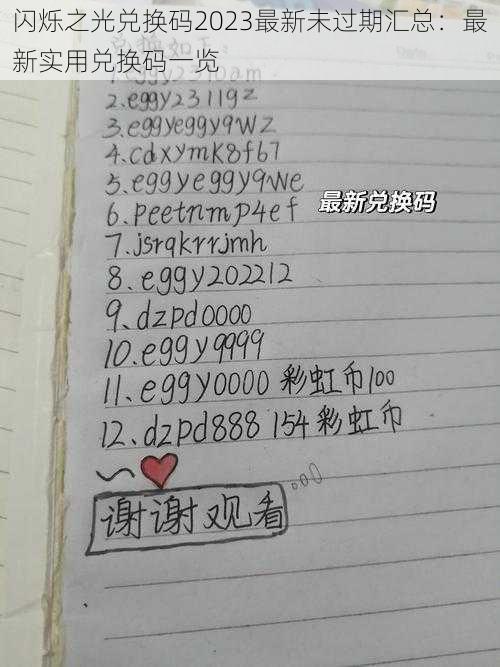 闪烁之光兑换码2023最新未过期汇总：最
新实用兑换码一览
兑换如下：
1.eggy2310am
2.eggy2311gz
3.eggyeggy9wz
4.cdxymk8f67
5.eggyeggy9we
最新兑换码
6.peetnmp4ef
7.jsrqkrrjmh
8.eggy202212
9.dzpd0000
10.eggy9999
11.eggy0000 彩虹币100
12.dzpd888 154彩虹币
谢谢观看